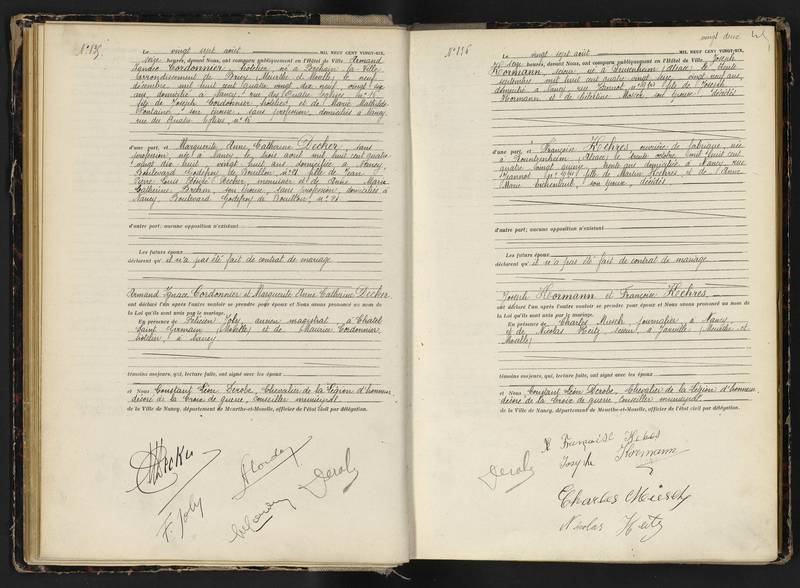 N° 135
Le vingt sept août MIL NEUF CENT VINGT-SIX,
seize heures, devant Nous, ont comparu publiquement en l'Hôtel de Ville Armand
Ignace Cordonnier, hôtelier, né à Bréhain la Ville
(arrondissement de Briey (Meurthe et Moselle) le neuf
décembre mil huit cent quatre vingt dix neuf, vingt six
ans, domicilié à Nancy, rue des Quatre Eglises, n° 15,
fils de Joseph Cordonnier, hôtelier et de Marie Mathilde
Fontaine, son épouse, sans profession, domiciliés à Nancy,
rue des Quatre Eglises, n° 15
d'une part, et Marguerite Anne Catherine Decker, sans
profession, née à Nancy le trois avril mil huit cent quatre
vingt dix huit, vingt huit ans, domiciliée à Nancy,
Boulevard Godefroy de Bouillon, n° 21 fille de Jean
Pierre Louis Decker, menuisier et de Anne Marie
Catherine son épouse, sans profession, domiciliés à
Nancy, Boulevard Godefroy de Bouillon, n° 21
d'autre part; aucune opposition n'existant
Les futurs époux
déclarent qu'il n'a pas été fait de contrat de mariage
Armand Ignace Cordonnier et Marguerite Anne Catherine Decker
ont déclaré l'un après l'autre vouloir se prendre pour époux et Nous avons prononcé au nom de
la Loi qu'ils sont unis par le mariage.
En présence de Félicien Joly, ancien magistrat, à Châtel
Saint Germain (Moselle) et de Maurice Cordonnier
hôtelier, à Nancy
témoins majeurs, qui, lecture faite, ont signé avec les époux
et Nous Constant Léon Derobe, Chevalier de la Légion d'honneur
décoré de la Croix de guerre, Conseiller municipal
de la Ville de Nancy, département de Meurthe-et-Moselle, officier de l'état civil par délégation.
MDecker
F. Joly
vingt deux
N° 136
Le vingt sept août MIL NEUF CENT VINGT-SIX,
seize heures, devant Nous, ont comparu publiquement en l'Hôtel de Ville Joseph
Hormann, né à Drusenheim (Alsace) le trente
septembre mil huit cent quatre vingt dix, vingt neuf ans,
domicilié à Nancy rue Jeannot n° 19 bis fils de Joseph
Hormann et de Célestine son épouse, décédés
d'une part, et Françoise Kehres ouvrière de fabrique, née
à Rountzenheim (Alsace) le trente octobre mil huit cent
quatre vingt quinze, trente ans domiciliée à Nancy rue
Jeannot, n° 19 bis fille de Martin Kehres et de Anne
Marie son épouse, décédés
d'autre part; aucune opposition n'existant
Les futurs époux
déclarent qu'il n'a pas été fait de contrat de mariage
Joseph Hormann et Françoise Kehres
ont déclaré l'un après l'autre vouloir se prendre pour époux et Nous avons prononcé au nom de
la Loi qu'ils sont unis par le mariage.
En présence de Charles Musch, journalier, à Nancy,
et de Nicolas Heitz, à Jarville (Meurthe et
Moselle)
témoins majeurs, qui, lecture faite, ont signé avec les époux
et Nous Constant Léon Derobe, Chevalier de la Légion d'honneur
décoré de la Croix de guerre, Conseiller municipal
de la Ville de Nancy, département de Meurthe-et-Moselle, officier de l'état civil par délégation.
Françoise
Joseph Hormann
Charles
Nicolas Heitz